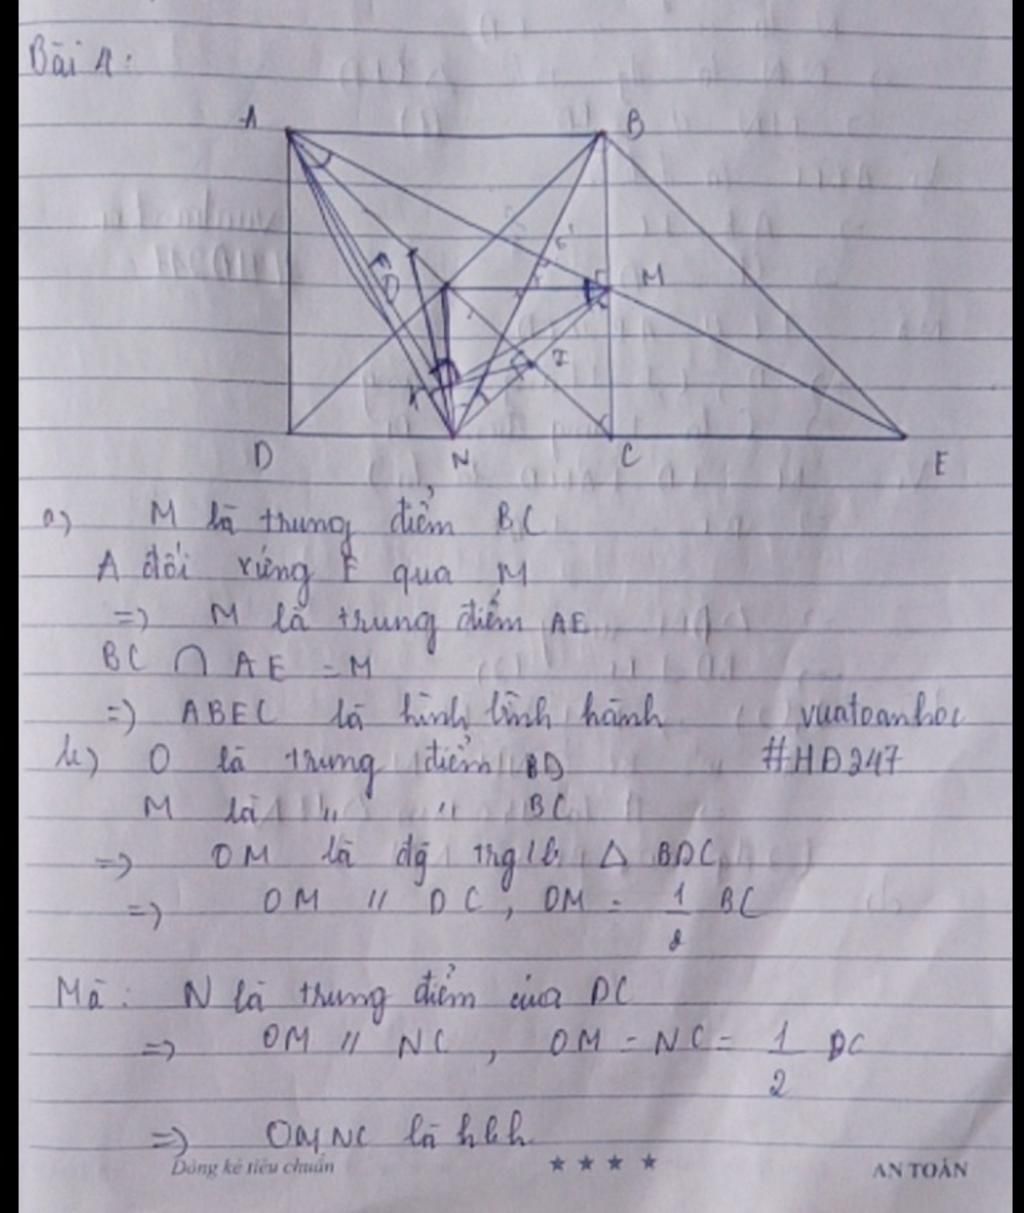 Bài 4:
A B
M
I
K
D N C E
a) M là trung điểm BC
A đối xứng E qua M
=> M là trung điểm AE
BC ∩ AE = M
=> ABEC là hình bình hành vuatoanhoc
b) O là trung điểm BD #HD247
M là " " BC
=> OM là đg trg/b △ BDC
=> OM // DC, OM = 1/2 BC
Mà: N là trung điểm của DC
=> OM // NC, OM = NC = 1/2 DC
=> OMNC là hbh.
Dòng kẻ tiêu chuẩn ★ ★ ★ ★ AN TOÀN